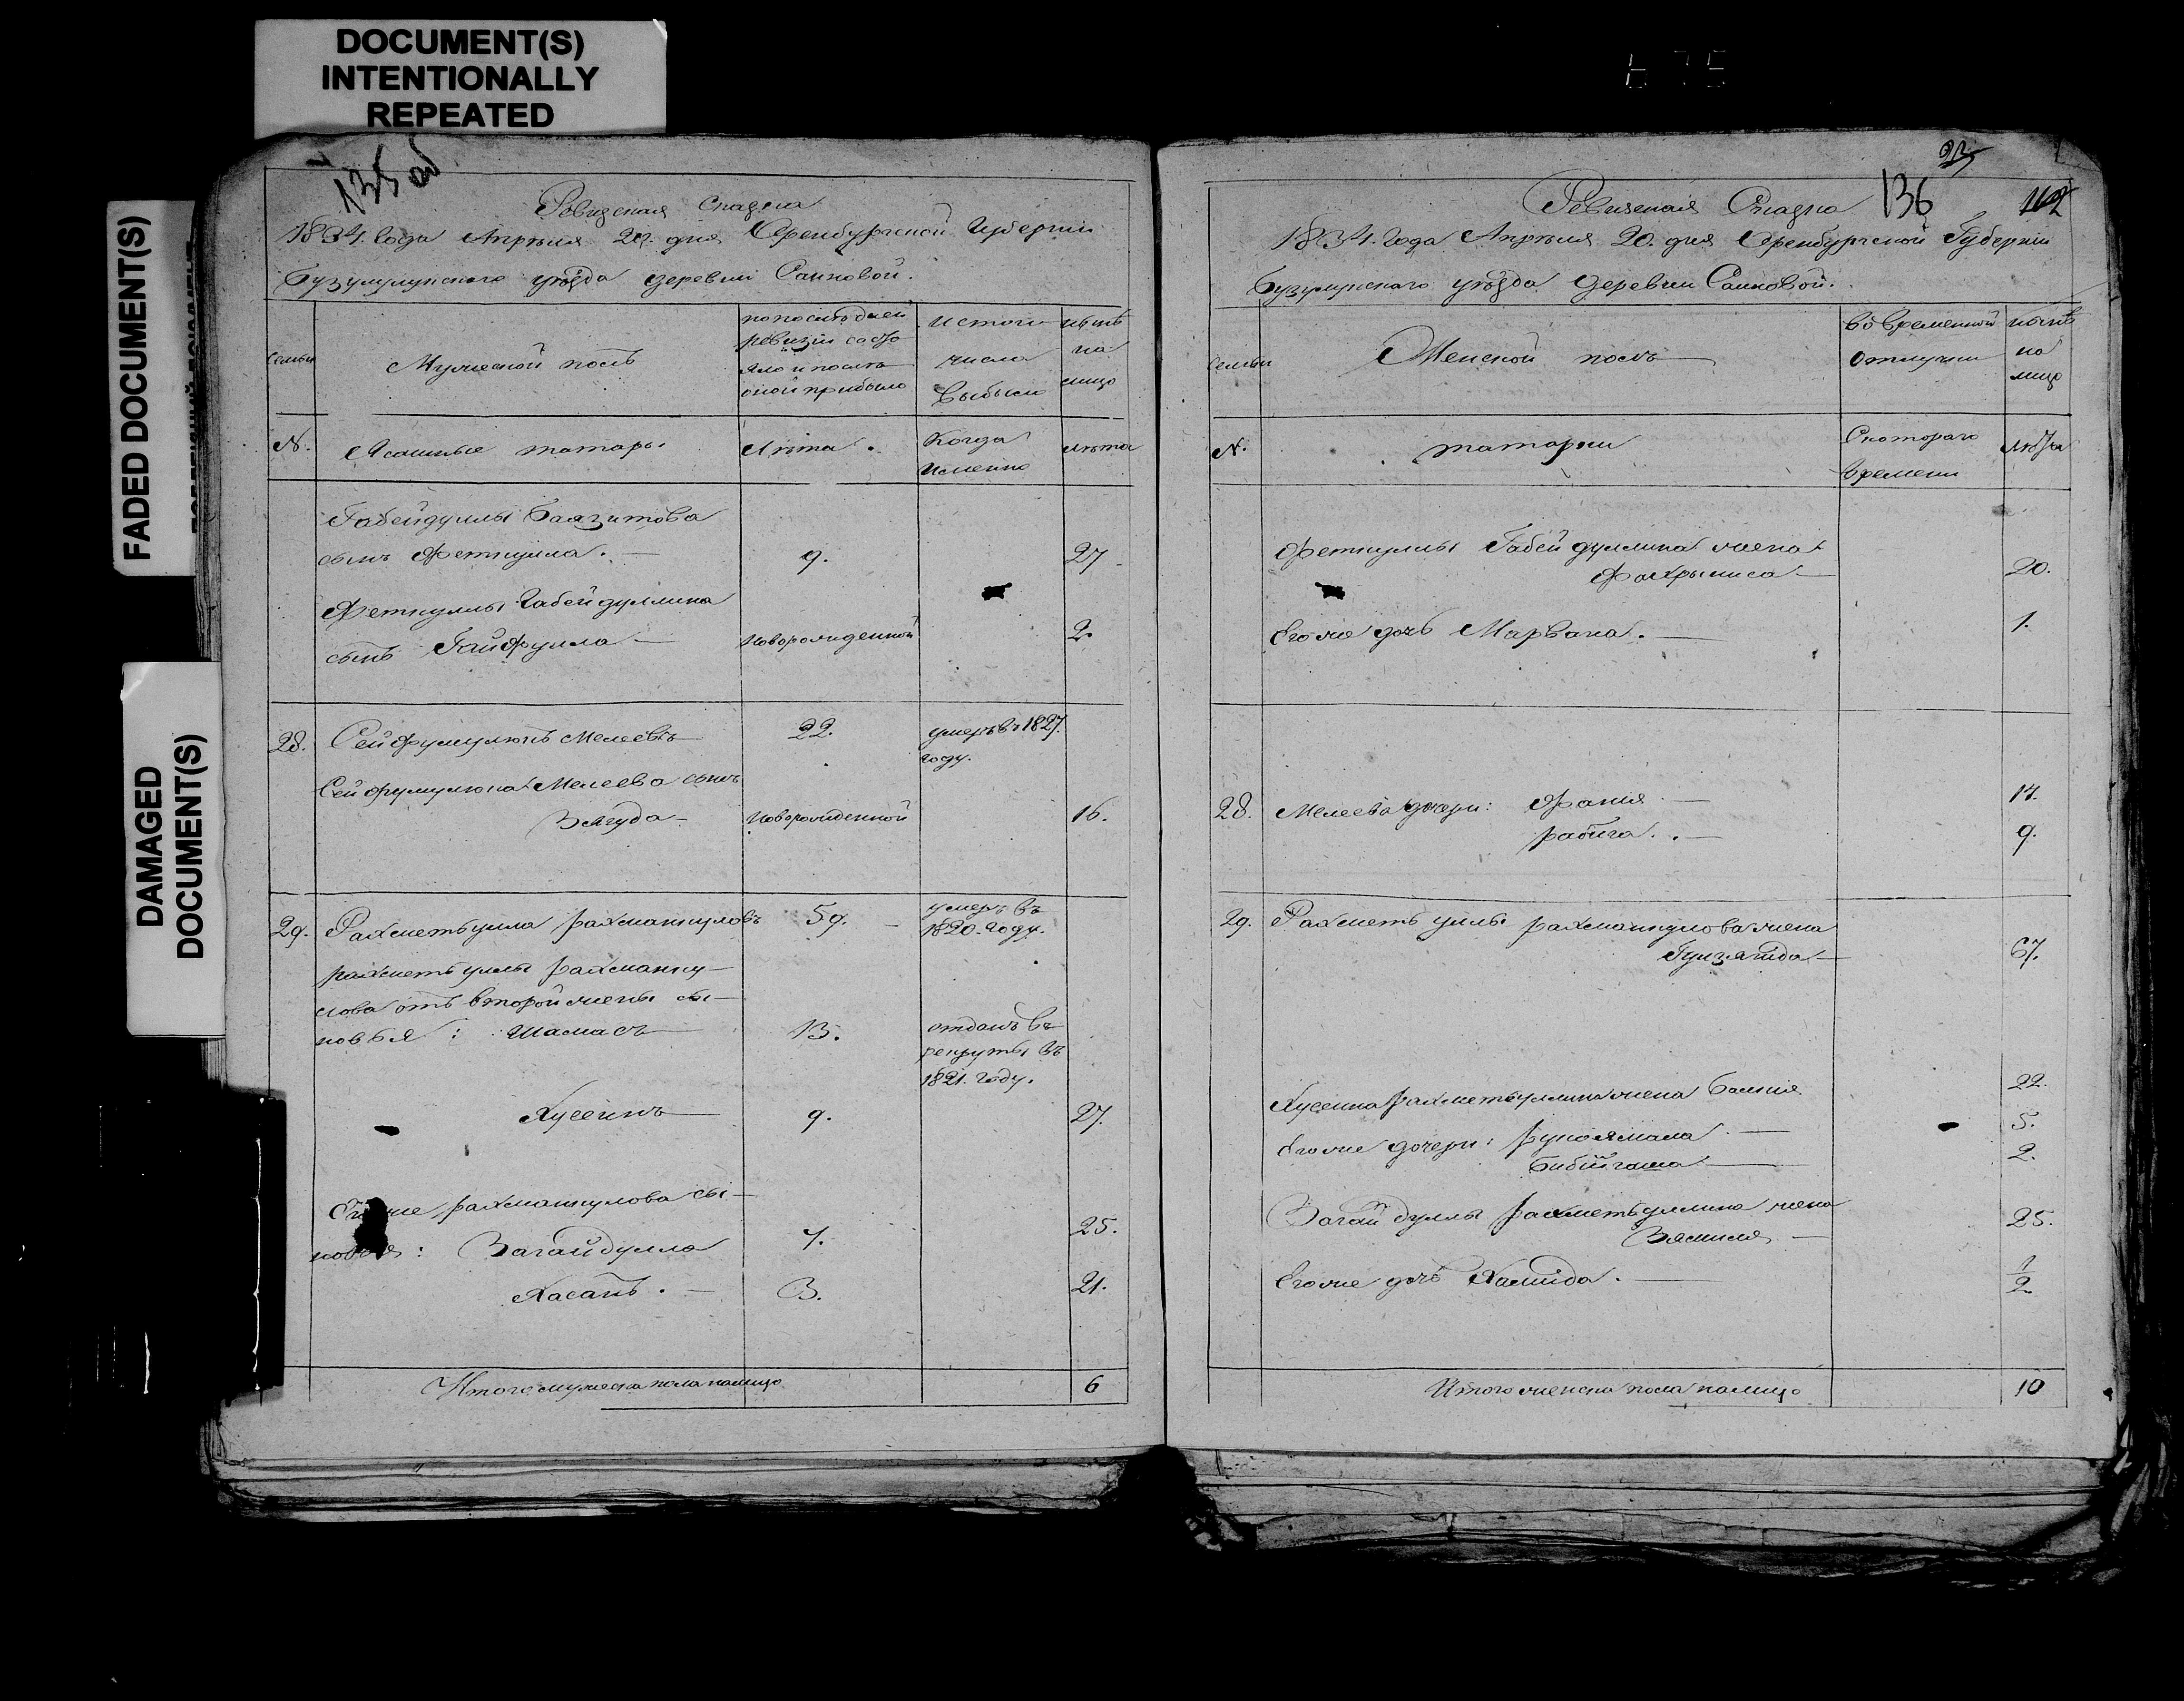 DOCUMENT(S)
INTENTIONALLY
REPEATED
FADED DOCUMENT(S)
DAMAGED
DOCUMENT(S)
135 об
Ревизская Сказка
1834. Года Апреля 20. дня Оренбургской Губернии
уѣзда деревни Саиновой.
семьи
Мужеской полъ
по последней
ревизіи состо
яло и послѣ
оной прибыло
Истого
числа
выбыло
нынѣ
на
лицо
N.
Ясашные татары
Лѣта.
Когда
именно
Лѣта
Габейдуллы Баязитова
сынъ Феткулла. —
9.
27
Феткуллы Габейдуллина
сынъ Гайфулла —
Новорожденной
2.
28.
Сейфумулюкъ Мелеевъ —
22.
умеръ въ 1827.
году.
Сейфумулюка Мелеева сынъ
Зягуда —
Новорожденной
16.
29.
Рахметьулла рахманкуловъ
59. —
умеръ въ
1820. году.
рахметьуллы рахманку —
лова отъ второй жены сы —
новья : Шамасъ —
13.
отданъ въ
рекруты въ
1821. году.
Хусеинъ —
9.
27.
рахманкулова сы —
новья : Загайдулла
7.
25.
Хасанъ. —
3.
21.
Итого мужеска пола налицо
6
93
136
112
Ревизская Сказка
1834. Года Апреля 20. дня Оренбургской Губернии
уѣзда деревни Саиновой.
семьи
Женской полъ —
во временной
отлучки
нынѣ
на
лицо
N.
татарки
Скотораго
времени
Лѣта
Феткуллы Габейдуллина жена
Фахрыниса —
20.
Егоже дочь Марвана. —
1.
28.
Мелеева дочери: Фания. —
14.
рабига. . —
9.
29.
Рахметьуллы рахманкулова жена
67.
Хусеина рахметьуллина жена
22.
Егоже дочери: —
5.
—
2.
Загайдуллы рахметьуллина жена
Зямиля —
25.
Егоже дочь Хамида. —
1/2
Итого женска пола налицо
10